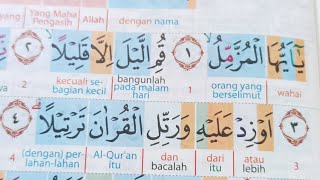 Yang Maha Pengasih Allah dengan nama
يٰٓاَيُّهَا الْمُزَّمِّلُۙ ١ قُمِ الَّيْلَ اِلَّا قَلِيْلًاۙ ٢
wahai orang yang berselimut 1 bangunlah pada malam hari kecuali se-bagian kecil 2
٣ اَوْ زِدْ عَلَيْهِ وَرَتِّلِ الْقُرْاٰنَ تَرْتِيْلًاۗ ٤
3 atau lebih dari itu dan bacalah Al-Qur'an itu (dengan) per-lahan-lahan 4